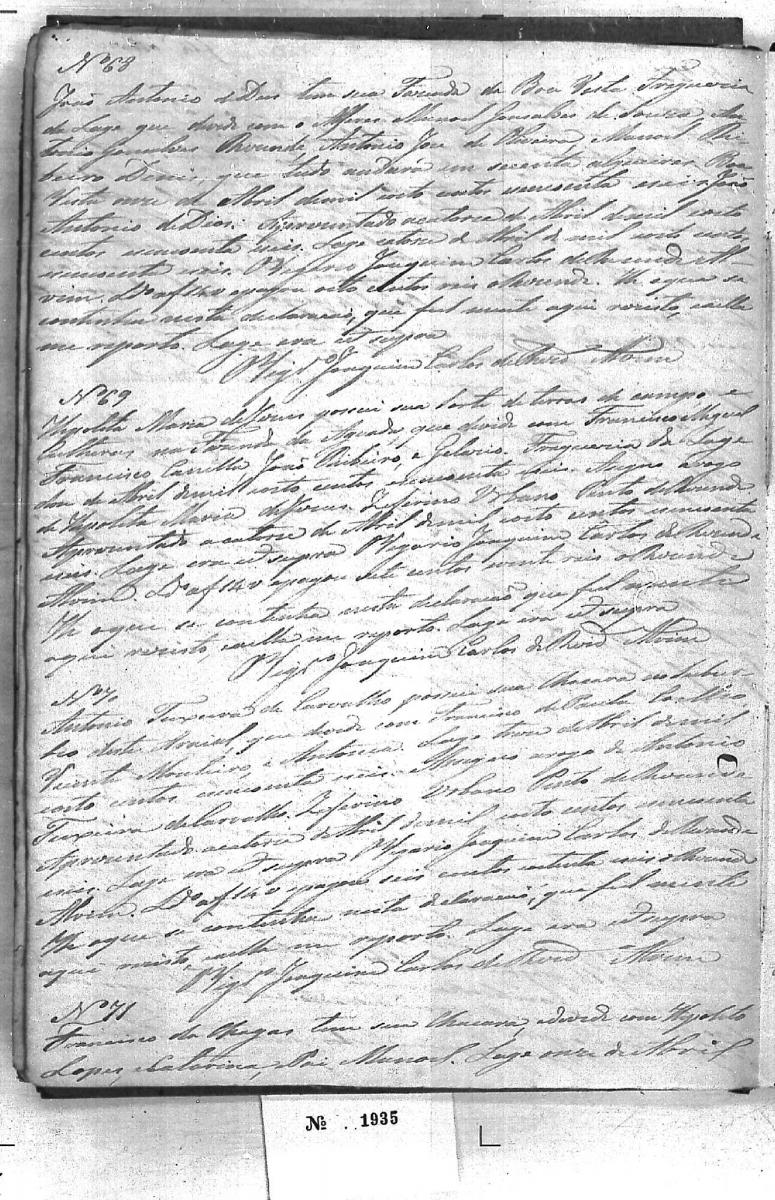 Nº 68
João Antonio de Deos tem sua Fazenda da Boa Vista Freguezia
da Lage que divide com o Alferes Manoel Gonsalves de Souza, An-
tonio Gonsalves Rezende, Antonio Jose de Oliveira, Manoel Ri-
beiro Diniz, que tudo andará em secenta alqueires. Boa
Vista onze de Abril de mil oito centos cincoenta e seis. João
Antonio de Deos. Aprezentado a catorze de Abril de mil oito
centos cincoenta e seis. Lage catorze de Abril de mil oito centos
cincoenta e seis. O Vigario Joaquim Carlos de Rezende Al-
vim. L.º af 140 e pagou oito centos reis e Rezende. He o que se
continha nesta declaracão, que fielmente aqui rezisto, e a ella
me reporto. Lage era et supra
O Vigr.º Joaquim Carlos de Rezd Alvim
Nº 69
Hypolita Maria de Jesus possui sua sorte de terras de campo, e
Culturas na Fazenda da Aguada, que divide com Francisco Miguel
Francisco Carrilho João Ribeiro, e Freguezia da Lage
de Abril de mil oito centos cincoenta e seis. a rogo
de Hypolita Maria de Jesus. Zeferino Urbano Pinto de Rezende
Aprezentado a catorze de Abril de mil oito centos cincoenta
e seis. Lage era et supra O Vigario Joaquim Carlos de Rezende
Alvim. L.º af 140 e pagou sete centos vinte reis e Rezende
He o que se continha nesta declaracão que fielmente
aqui rezisto, e a ella me reporto. Lage era et supra
O Vigr.º Joaquim Carlos de Rezd Alvim
Nº 70
Antonio Teixeira de Carvalho possui sua Chacara no Subur-
bio deste Arraial, que divide com Francisco de Paula Coelho
Vicente Monteiro, e Antonia. Lage treze de Abril de mil
oito centos cincoenta e seis. a rogo de Antonio
Teixeira de Carvalho. Zeferino Urbano Pinto de Rezende
Aprezentado a catorze de Abril de mil oito centos cincoenta
e seis. Lage era et supra O Vigario Joaquim Carlos de Rezende
Alvim. L.º af 140 e pagou seis centos oitenta reis e Rezende
He o que se continha nesta declaracão, que fielmente
aqui rezisto, e a ella me reporto. Lage era et supra
O Vigr.º Joaquim Carlos de Rezd Alvim
Nº 71
Francisco das Chagas tem sua Chacara, e divide com Hypolito
Lopes, e Catarina, e Pai Manoel. Lage onze de Abril
№ 1935